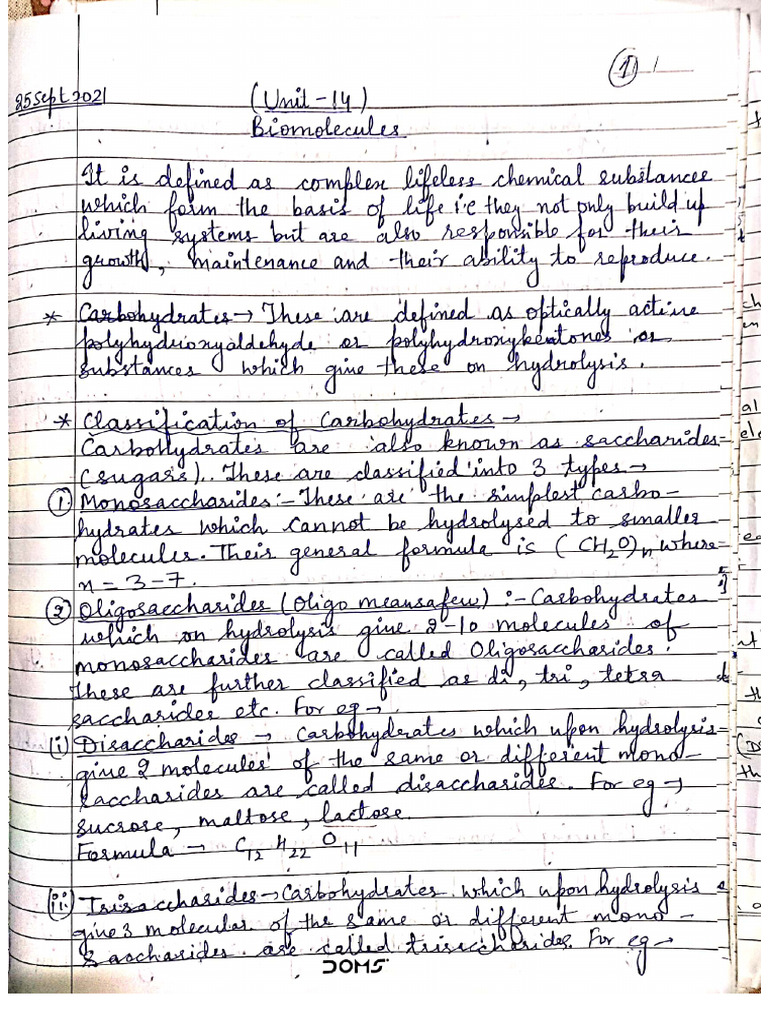 1
25 Sept 2021
(Unit-14)
Biomolecules
It is defined as complex lifeless chemical substances
which form the basis of life i.e they not only build up
living systems but are also responsible for their
growth, maintenance and their ability to reproduce.
* Carbohydrates → These are defined as optically active
polyhydroxyaldehyde or polyhydroxyketones or
substances which give these on hydrolysis.
* Classification of Carbohydrates →
Carbohydrates are also known as saccharides
(sugars). These are classified into 3 types →
① Monosaccharides :- These are the simplest carbo-
hydrates which cannot be hydrolysed to smaller
molecules. Their general formula is (CH₂O)n where
n = 3-7.
② Oligosaccharides (Oligo means a few) :- Carbohydrates
which on hydrolysis give 2-10 molecules of
monosaccharides are called Oligosaccharides.
These are further classified as di, tri, tetra
saccharides etc. For eg →
(i) Disaccharides → Carbohyderates which upon hydrolysis
give 2 molecules of the same or different mono-
saccharides are called disaccharides. For eg →
sucrose, maltose, lactose.
Formula → C₁₂ H₂₂ O₁₁
(ii) Trisaccharides → Carbohydrates which upon hydrolysis
give 3 molecular of the same or different mono-
saccharides are called trisaccharides. For eg →
DOMS